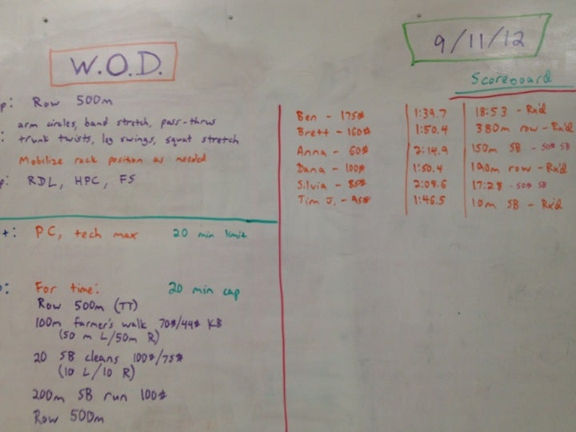 W.O.D.
9/11/12
Scoreboard
p: Row 500m
arm circles, band stretch, pass-thrus
: trunk twists, leg swings, squat stretch
Mobilize rack position as needed
p: RDL, HPC, FS
t: PC, tech max 20 min limit
: For time: 20 min cap
Row 500m (TT)
100m farmer's walk 70#/44# KB
(50 m L/50m R)
20 SB cleans 100#/75#
(10 L/10 R)
200m SB run 100#
Row 500m
Ben - 175# 1:39.7 18:53 - Rx'd
Brett - 160# 1:50.4 380m row - Rx'd
Anna - 60# 2:14.9 150m SB - 50# SB
Dana - 100# 1:50.4 190m row - Rx'd
Silvia - 85# 2:09.6 17:28 - 50# SB
Tim J. - 95# 1:46.5 10m SB - Rx'd